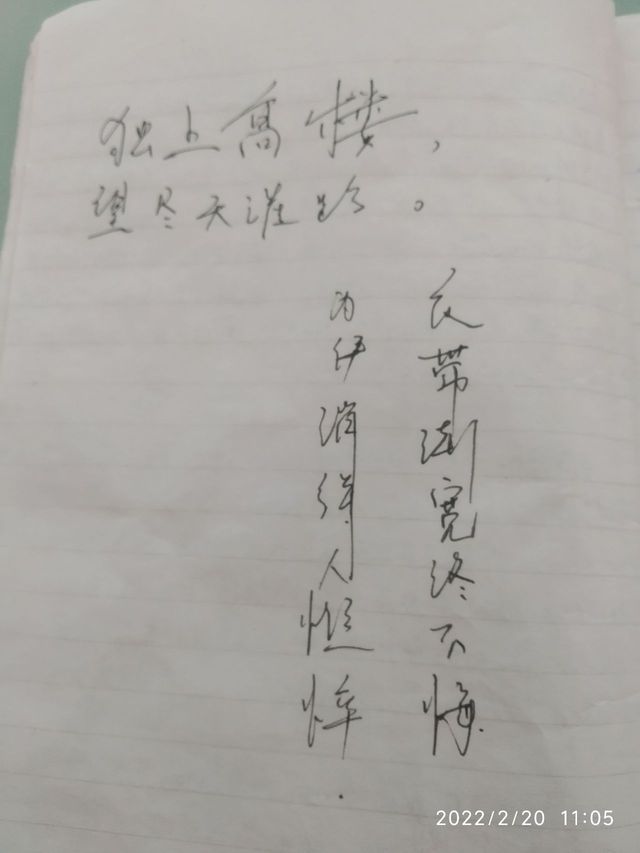 独上高楼，
望尽天涯路。
衣带渐宽终不悔
为伊消得人憔悴.
2022/2/20 11:05